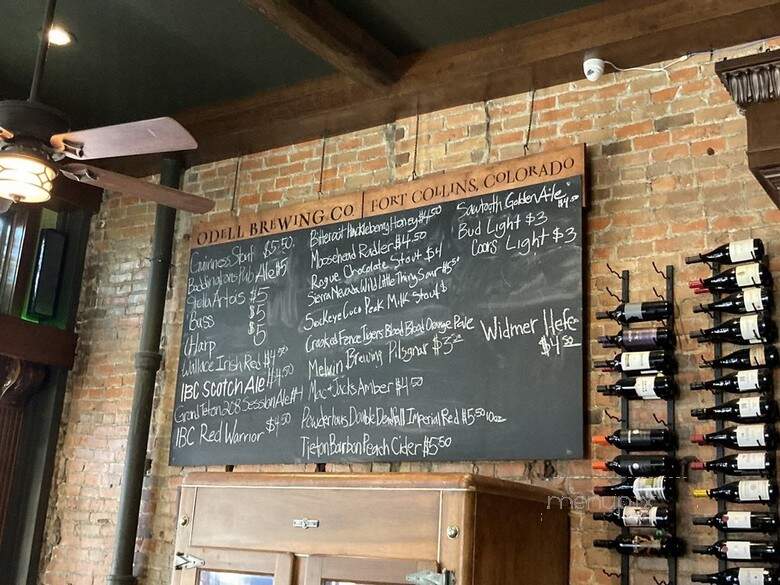 ODELL BREWING CO. | FORT COLLINS, COLORADO
Guinness Stout $5.50
Boddingtons Pub Ale $5
Stella Artois $5
Bass $5
Harp $5
Wallace Irish Red $4.50
IBC SCOTCH Ale $4.50
Grand Teton 208 Session Ale $4
IBC Red Warrior $4.50
Bitterroot Huckleberry Honey $4.50
Moosehead Radler $4.50
Rogue Chocolate Stout $4
Sierra Nevada Wild Little Thing Sour $5
Sockeye Coco Peak Milk Stout
Crooked Fence Tigers Blood Blood Orange
Melvin Brewing Pilsgnar $3
Mac + Jacks Amber $4.50
Powderhaus Double Deadfall Imperial Red $5.50 10oz
Tieton Bourbon Peach Cider $5.50
Sawtooth Golden Ale $4.50
Bud Light $3
Coors Light $3
Widmer Hefe
$4.50
menupix